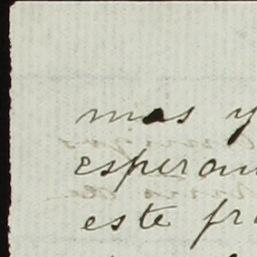 mas y
esperan
este fr